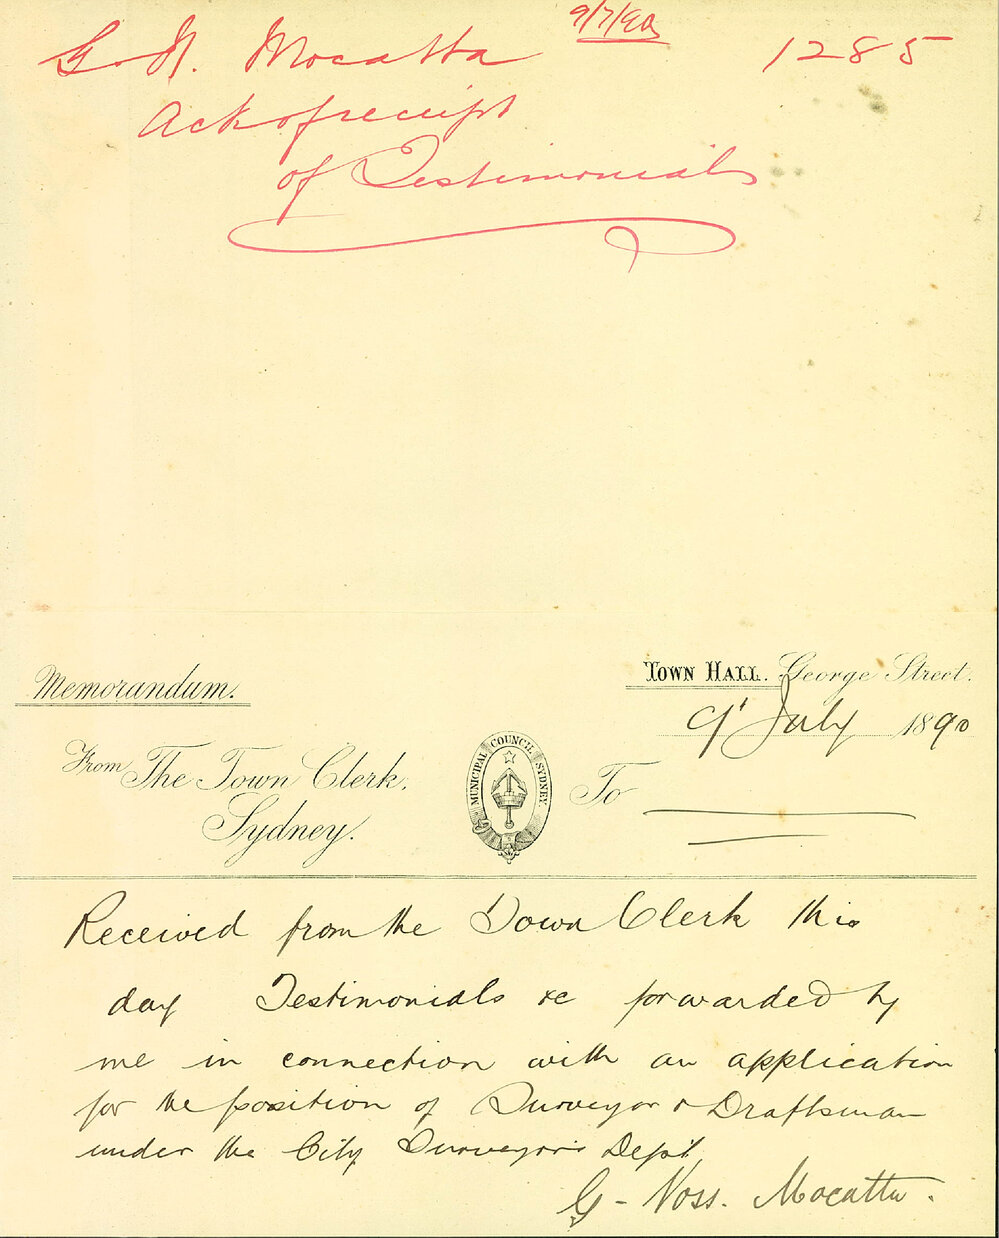 9/7/90
G. N. Mocatta 1285
Ack of receipt
of Testimonials
Memorandum.
TOWN HALL. George Street.
9' July 1890
From The Town Clerk.
Sydney.
MUNICIPAL COUNCIL SYDNEY.
To
Received from the Town Clerk this
day Testimonials &c forwarded by
me in connection with an application
for the position of Surveyor & Draftsman
under the City Surveyors Dept
G - Voss. Mocatta.